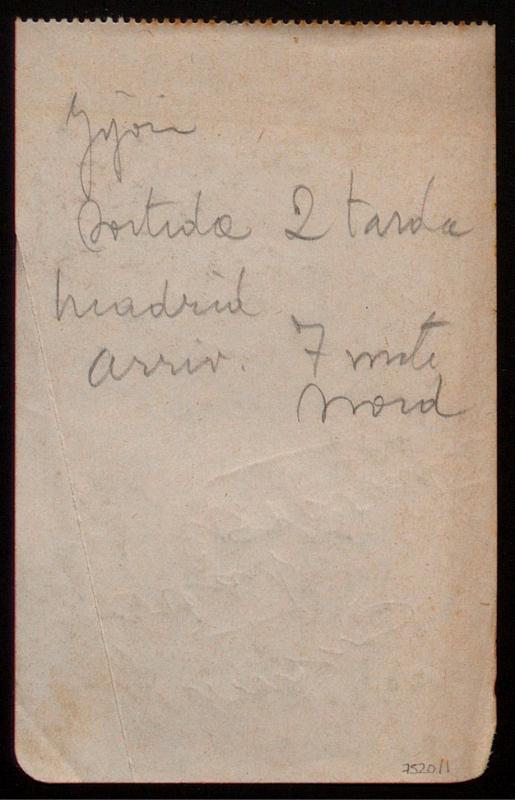 Gijon
Sortida 2 tarda
Madrid
arriv. 7
Nord
7520/1